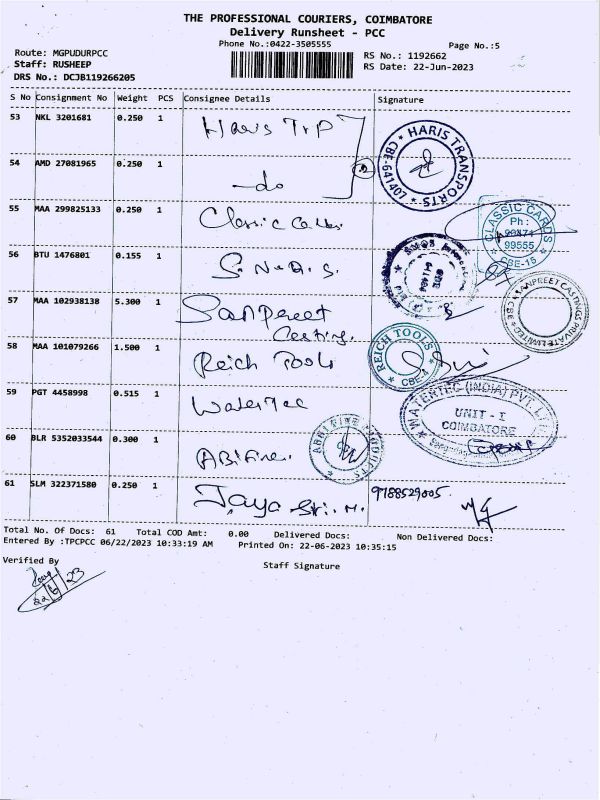 THE PROFESSIONAL COURIERS, COIMBATORE
Delivery Runsheet - PCC
Phone No.:0422-3505555
Page No.:5
Route: MGPUDURPCC
RS No.: 1192662
Staff: RUSHEEP
RS Date: 22-Jun-2023
DRS No.: DCJB119266205
S No Consignment No Weight PCS Consignee Details Signature
53 NKL 3201681 0.250 1 Haris TrP
HARIS TRANSPORTS CBE-641407
54 AMD 27081965 0.250 1 do
55 MAA 299825133 0.250 1 Classic
CLASSIC CARDS Ph: 99555 CBE-15
56 BTU 1476801 0.155 1 S.N.Q.S.
57 MAA 102938138 5.300 1 Sanpreet
Casting.
MANPREET CASTINGS PRIVATE LIMITED CBE
58 MAA 101079266 1.500 1 Reich Tools
REICH TOOLS CBE-4
59 PGT 4458998 0.515 1 Watertec
WATERTEC (INDIA) PVT. LTD
UNIT - I
COIMBATORE
60 BLR 5352033544 0.300 1 ABiFire.
PRODUCTS
61 SLM 322371580 0.250 1 Jaya Sri. M. 9788529005.
Total No. Of Docs: 61 Total COD Amt: 0.00 Delivered Docs: Non Delivered Docs:
Entered By :TPCPCC 06/22/2023 10:33:19 AM Printed On: 22-06-2023 10:35:15
Verified By
Staff Signature
22/6/23